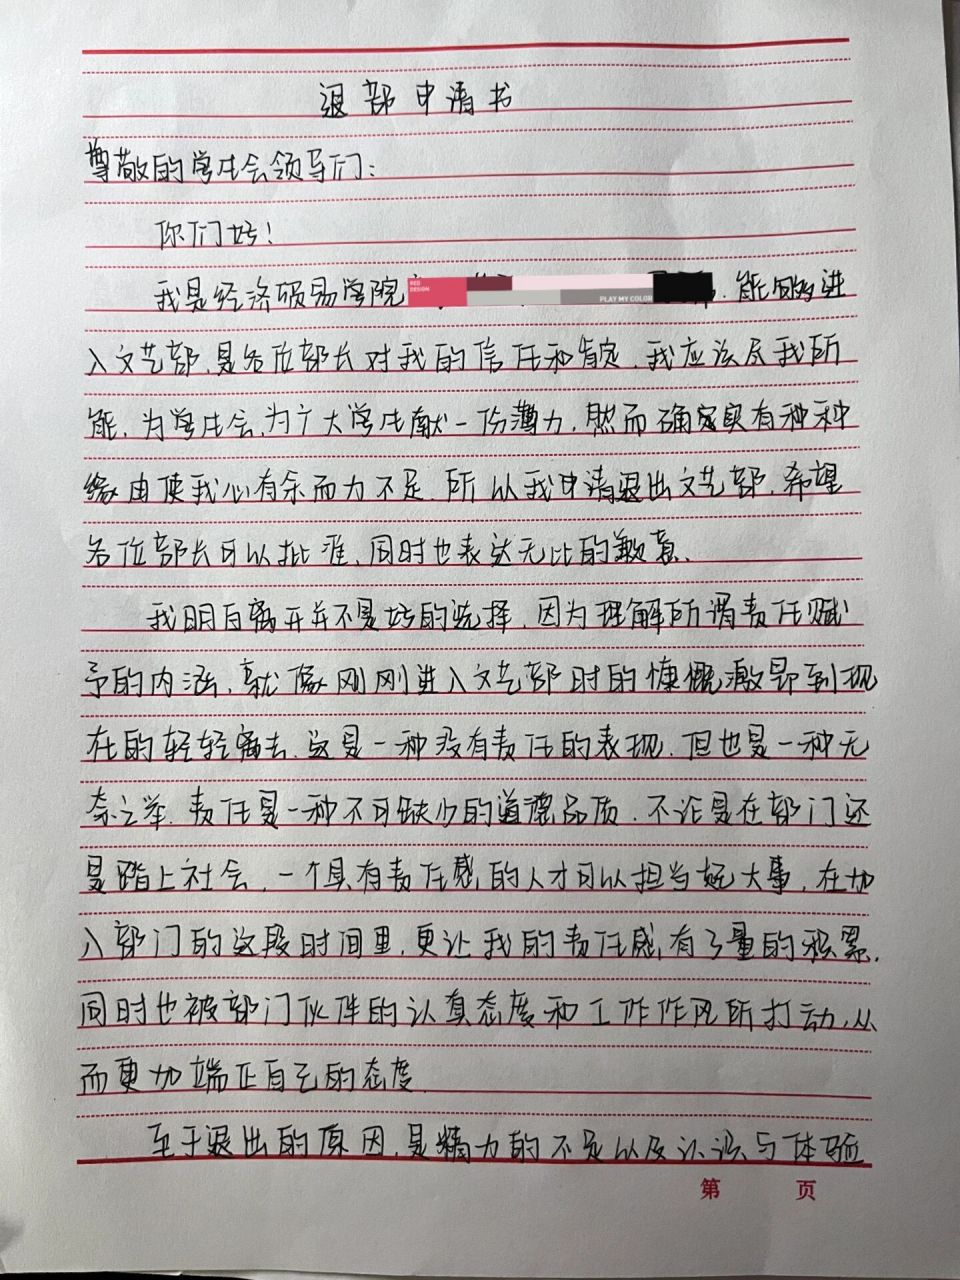 退部申请书
尊敬的学生会领导们：
你们好！
我是经济贸易学院
RED
DESIGN
PLAY MY COLOR
部，能够进
入文艺部，是各位部长对我的信任和肯定，我应该尽我所
能，为学生会，为广大学生献一份薄力，然而确定实有种种
缘由使我心有余而力不足，所以我申请退出文艺部，希望
各位部长可以批准，同时也表达无比的歉意、
我明白离开并不是好的选择，因为理解所谓责任赋
予的内涵，就像刚刚进入文艺部时的慷慨激昂到现
在的轻轻离去，这是一种没有责任的表现，但也是一种无
奈之举，责任是一种不可缺少的道德品质，不论是在部门还
是踏上社会，一个具有责任感的人才可以担当好大事，在加
入部门的这段时间里，更让我的责任感有了量的积累，
同时也被部门伙伴的认真态度和工作作风所打动，从
而更加端正自己的态度.
至于退出的原因，是精力的不足以及认识与体验
第 页